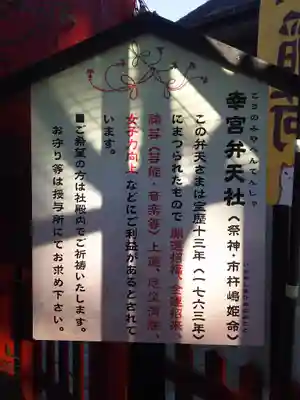 幸宮弁天社（祭神・市杵嶋姫命）
この弁天さまは宝暦十三年（一七六三年）
にまつられたもので開運招福、金運招来、
諸芸（芸能・音楽等）上達、厄災消除、
女子力向上などにご利益があるとされて
います。
■ご希望の方は社殿内でご祈祷いたします。
お守り等は授与所にてお求め下さい。